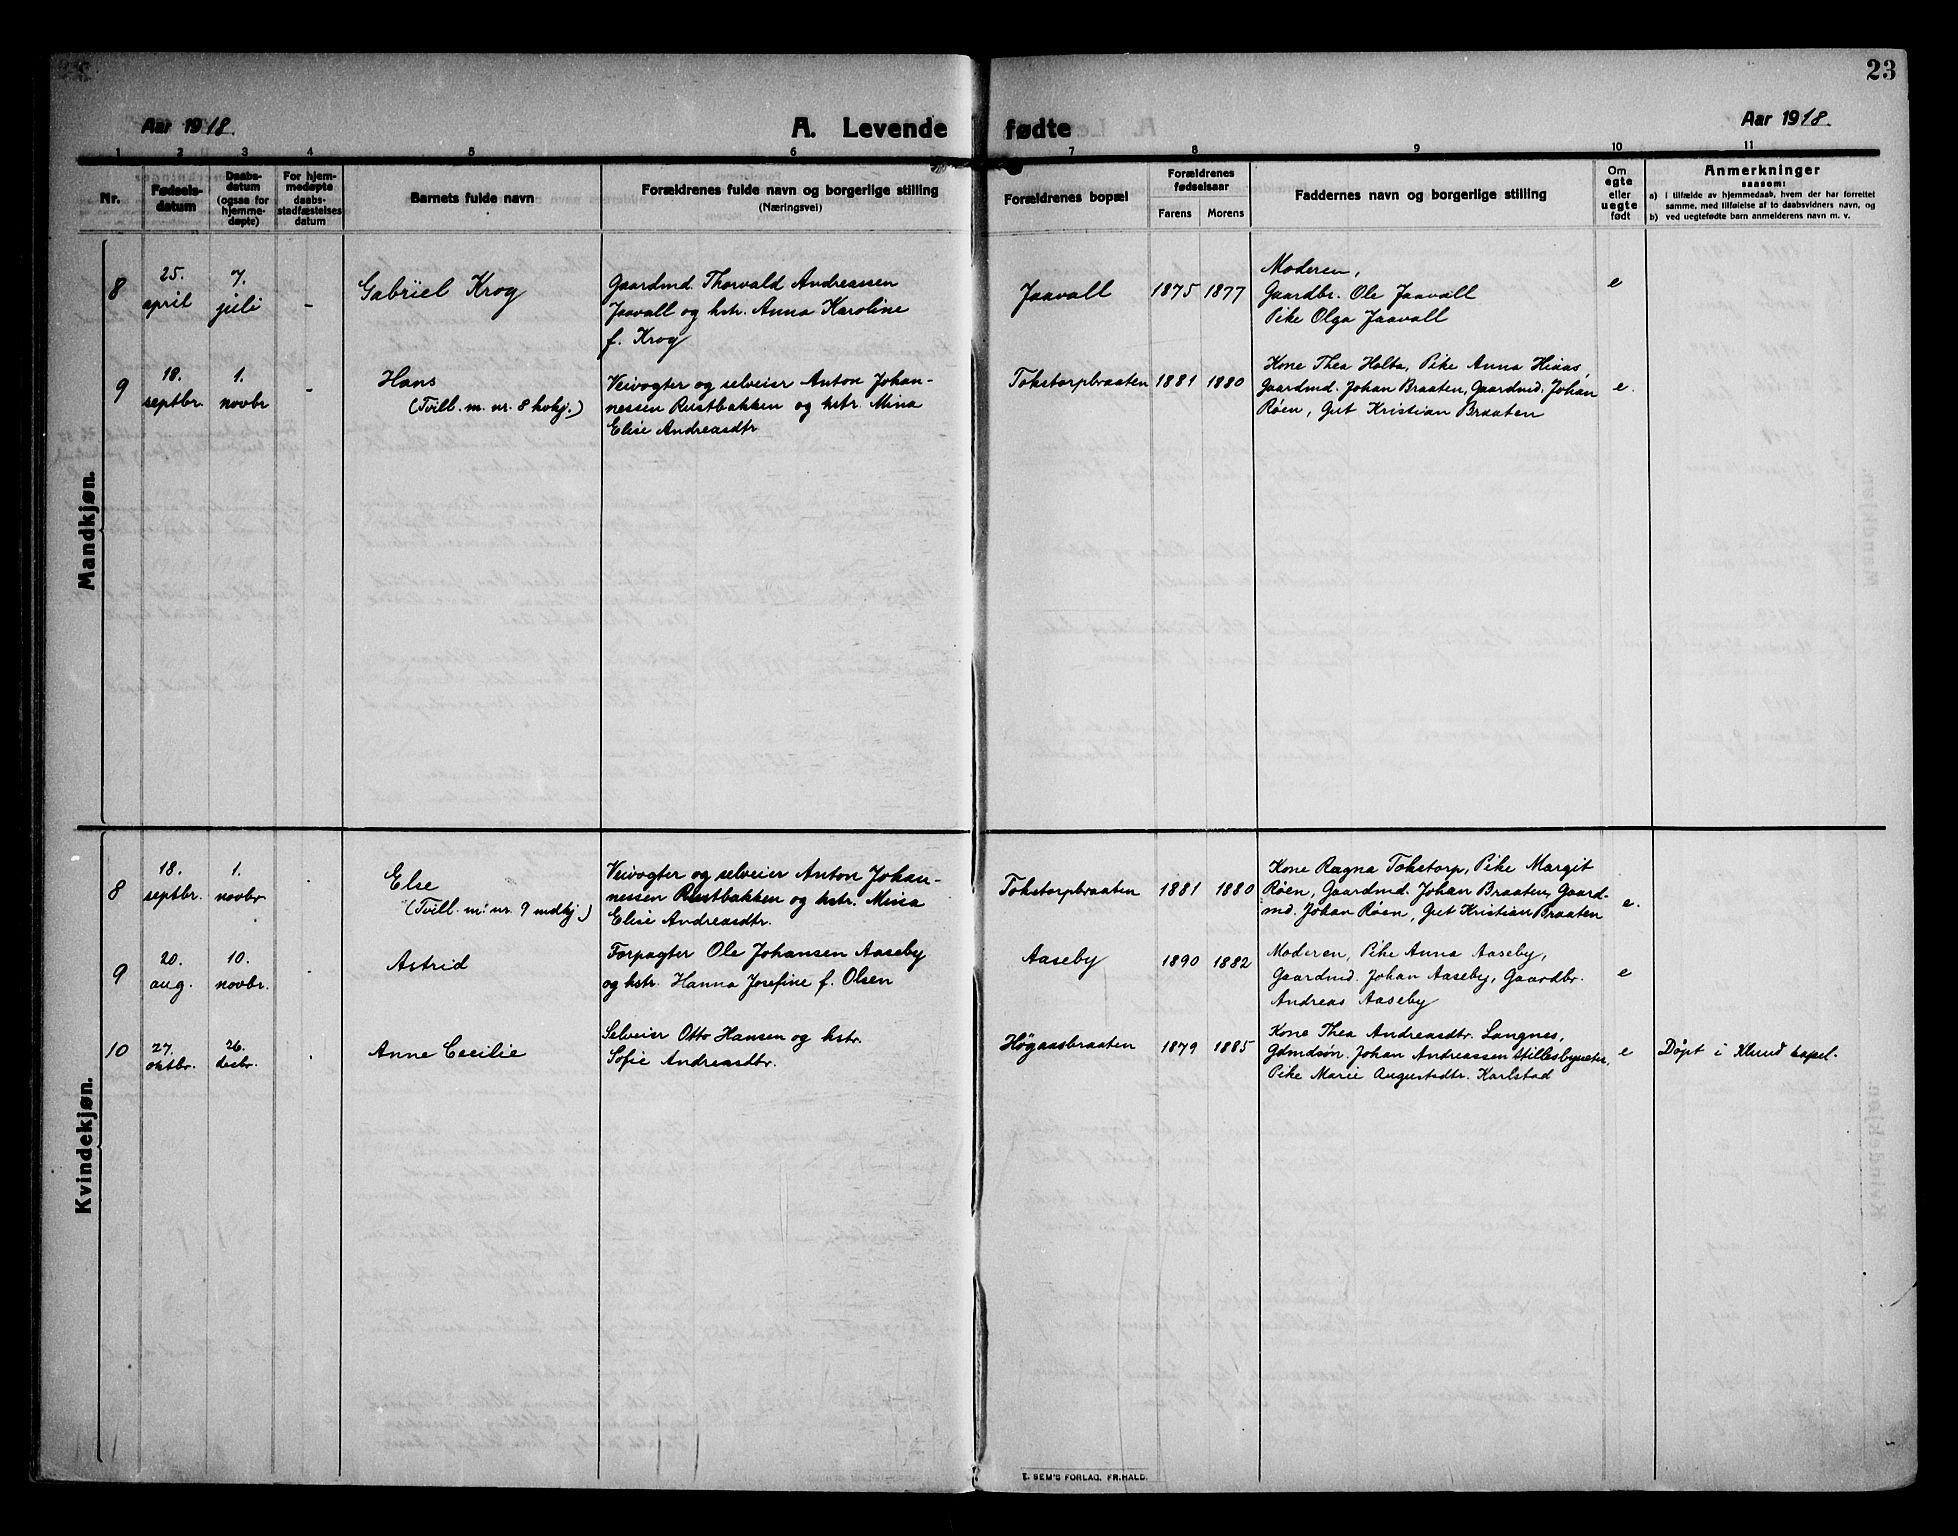 23
Aar 1918.
A. Levende fødte
Aar 1918.
1 2 3 4 5 6 7 8 9 10 11
Nr.
Fødsels-
datum
Daabs-
datum
(ogsaa for
hjemme-
døpte)
For hjem-
medøpte
daabs-
stadfæstelses
datum
Barnets fulde navn
Forældrenes fulde navn og borgerlige stilling
(Næringsvei)
Forældrenes bopæl
Forældrenes
fødselsaar
Farens Morens
Faddernes navn og borgerlige stilling
Om
egte
eller
uegte
født
Anmerkninger
saasom:
a) i tilfælde av hjemmedaab, hvem der har forrettet
samme, med tilføielse af to daabsvidners navn, og
b) ved uegtefødte barn anmelderens navn m. v.
Mandkjøn.
8
25.
april
7.
juli
-
Gabriel Krog
Gaardmd. Thorvald Andreassen
Jaavall og hstr. Anna Karoline
f. Krog
Jaavall
1875 1877
Moderen,
Gaardbr. Ole Jaavall
Pike Olga Jaavall
e
9
18.
septbr.
1.
novbr
-
Hans
(Tvill. m. nr. 8 kvkj.)
Veivogter og selveier Anton Johan-
nessen Rustbakken og hstr. Mina
Elise Andreasdtr
Tokstorpbraaten
1881 1880
Kone Thea Holta, Pike Anna Hiaas,
Gaardmd. Johan Braaten, Gaardmd. Johan
Røen, Gut Kristian Braaten
e.
Kvindekjøn.
8
18.
septbr.
1.
novbr
Else
(Tvill. m. nr. 9 mdkj.)
Veivogter og selveier Anton Johan-
nessen Rustbakken og hstr. Mina
Elise Andreasdtr.
Tokstorpbraaten
1881 1880
Kone Ragna Tokstorp, Pike Margit
Røen, Gaardmd. Johan Braaten, Gaard-
md. Johan Røen, Gut Kristian Braaten
e.
9
20.
aug.
10.
novbr.
Astrid
Forpagter Ole Johansen Aaseby
og hstr. Hanna Josefine f. Olsen
Aaseby
1890 1882
Moderen, Pike Anna Aaseby,
Gaardmd. Johan Aaseby, Gaardbr.
Andreas Aaseby
e
10
27.
oktbr.
26.
desbr.
Anne Cecilie
Selveier Otto Hansen og hstr.
Sofie Andreasdtr.
Høgaasbraaten
1879 1885
Kone Thea Andreasdtr. Langnes,
Gdmdsøn. Johan Andreassen
Pike Marie Augustadtr. Karlstad
e
Døpt i Klund kapel.
E. SEM'S FORLAG, FR.HALD.